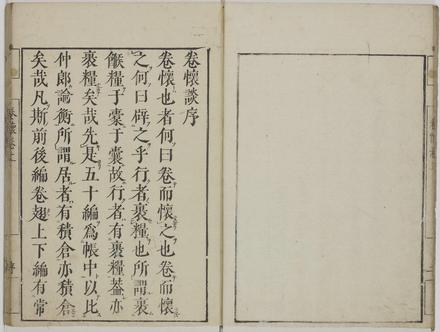 卷懷談序
卷懷也者何曰卷而懷之也卷而懷
之何曰辟之乎行者裹糧也所謂裹
餱糧于橐于囊故行者有裹糧蓋亦
裹糧矣哉先是五十編爲帳中以比
仲郎論衡所謂居者有積倉亦積倉
矣哉凡斯前後編卷翅上下編有常